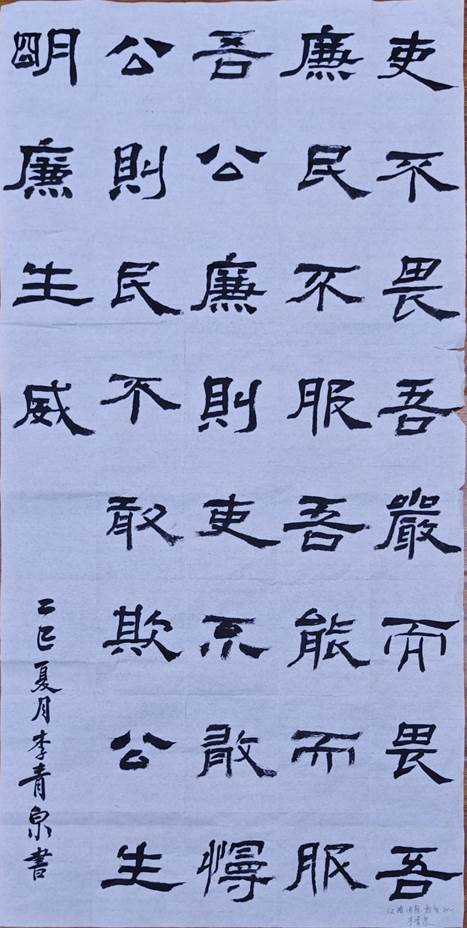 吏不畏吾嚴而畏吾
廉民不服吾能而服
吾公廉則吏不敢慢
公則民不敢欺公生
明廉生威
乙巳夏月李青泉書